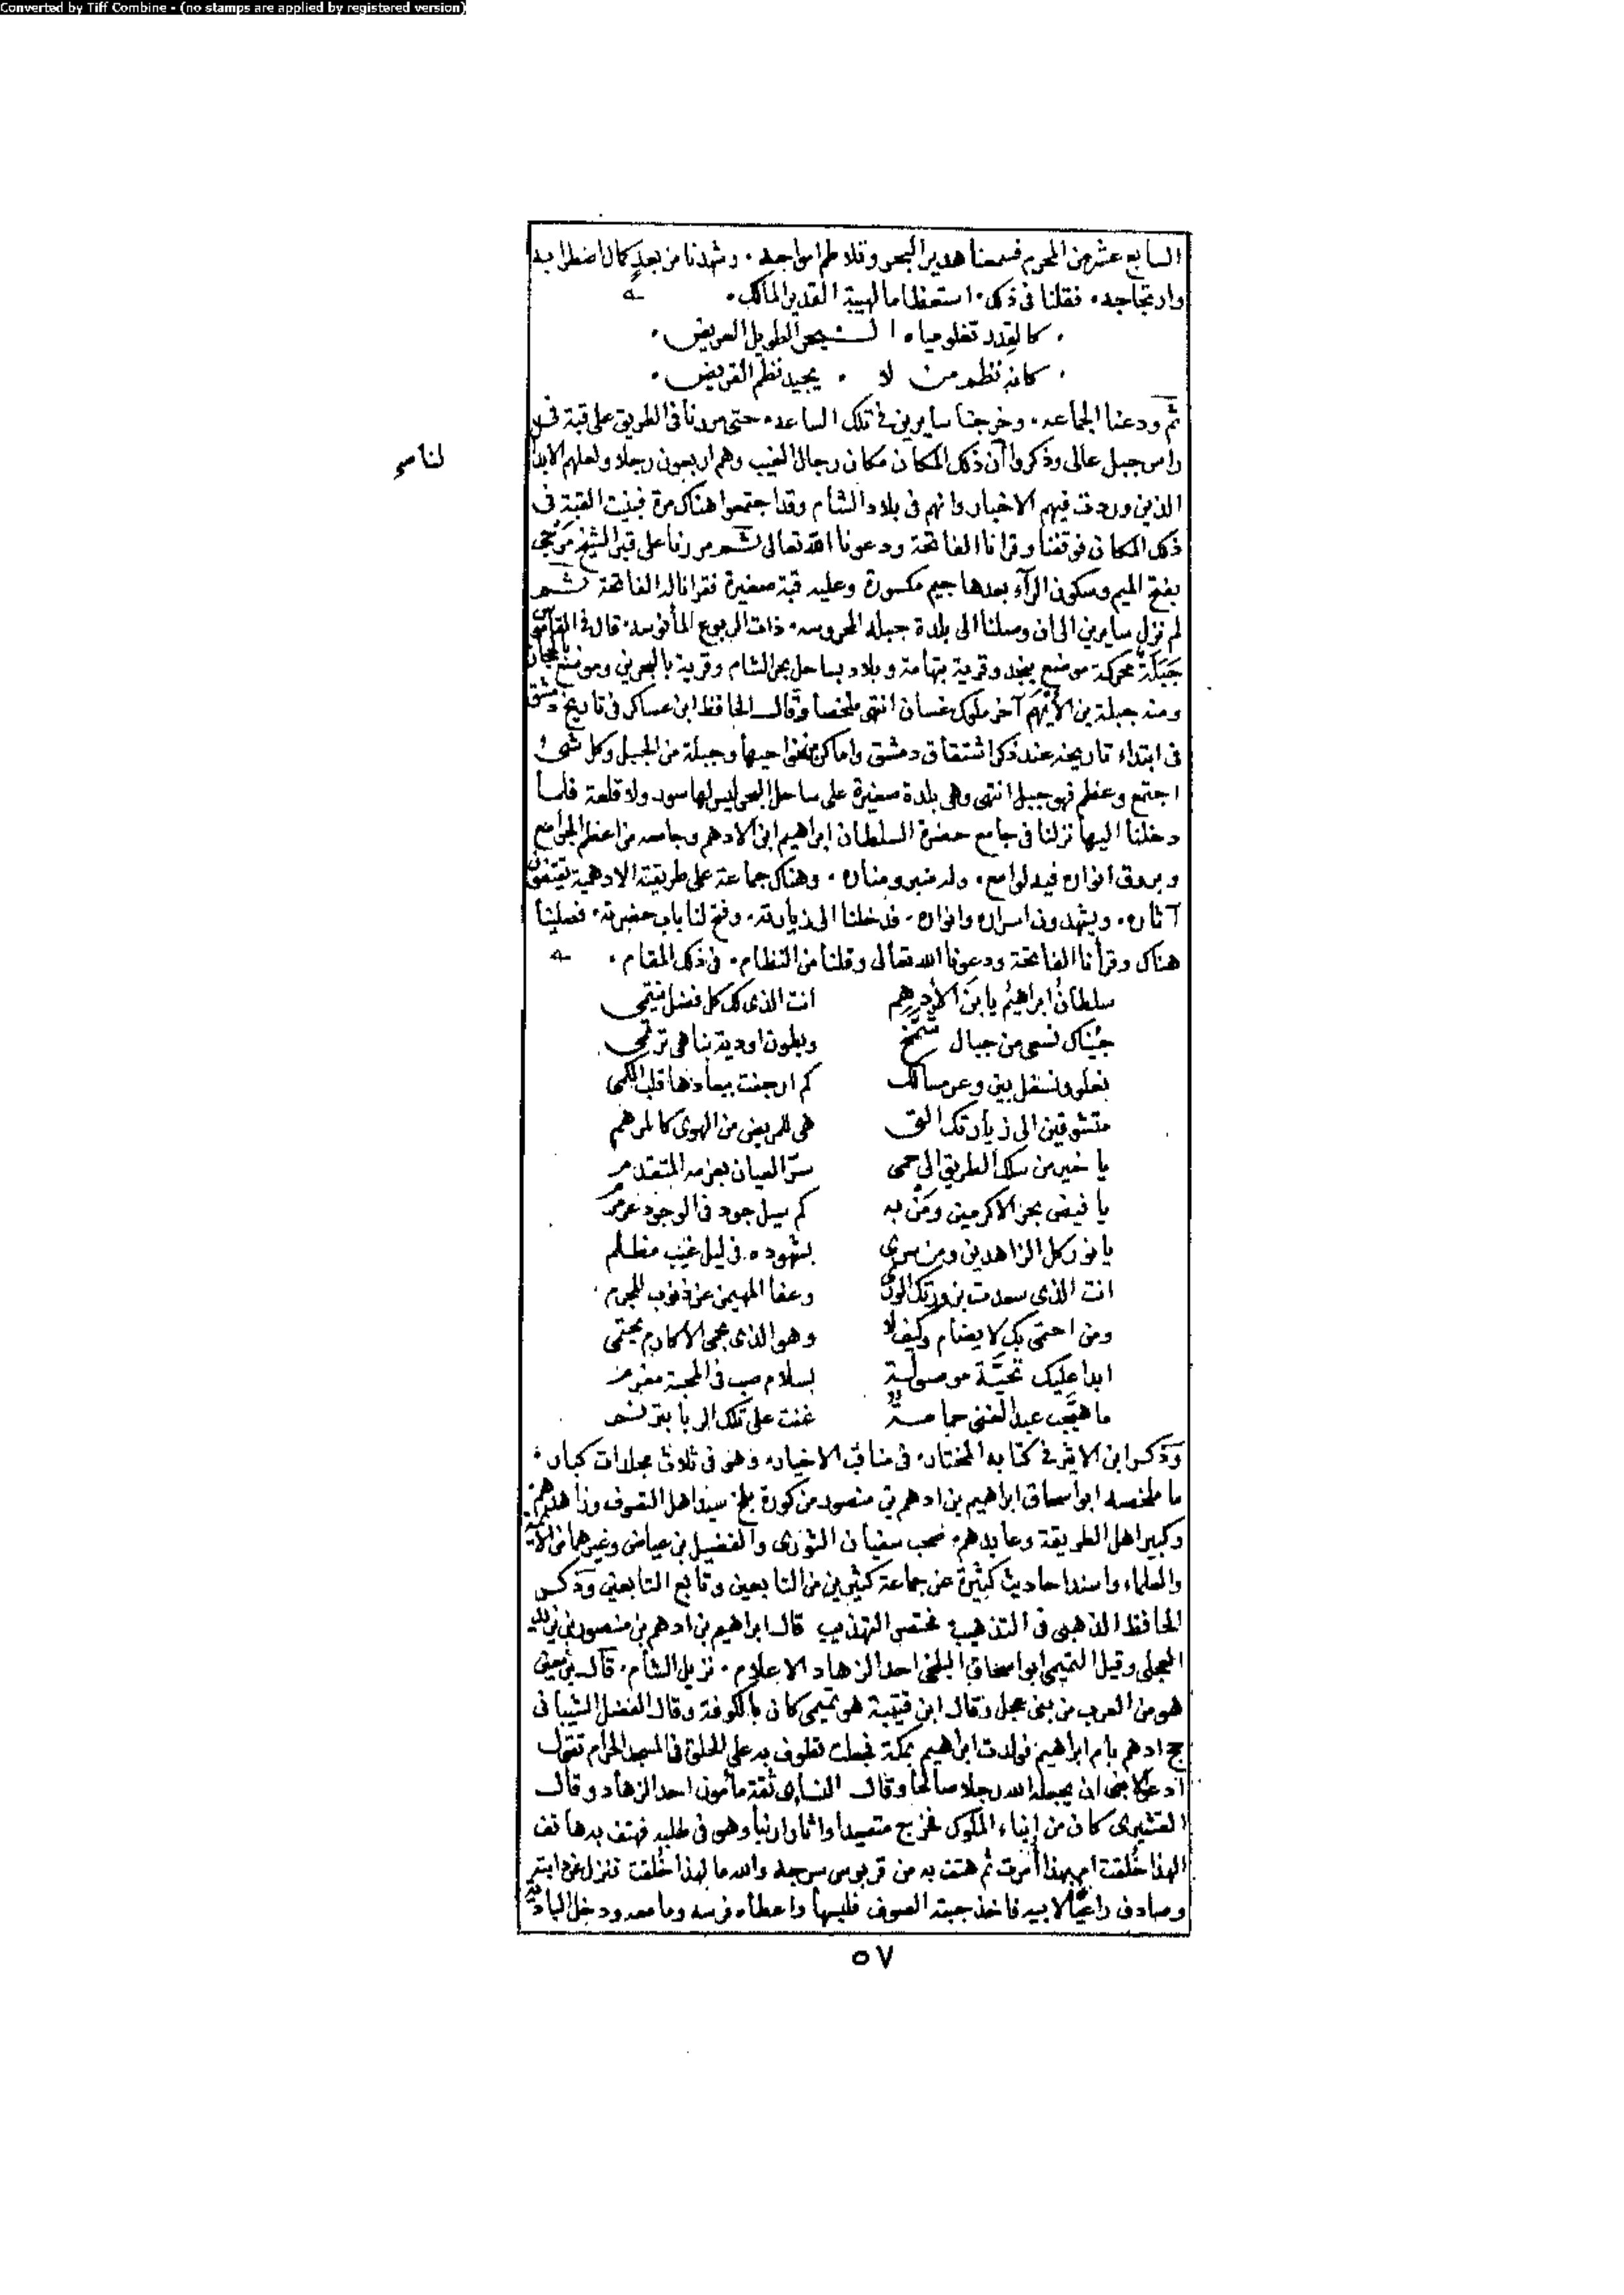 Converted by Tiff Combine - (no stamps are applied by registered version)
السابع عشر من المحرم فسمعنا هدير البحر وتلاطم امواجه. وشهدنا من بعد كمال اضطرابه
وارتجاجه. فقلنا فى ذلك. استعظاما لهيبة القدير المالك.
. كالقدر تغلو مياه ا لبحر الطويل العريض.
. كانه نظم من لا . يجيد نظم القريض.
ثم ودعنا الجماعه. وخرجنا سايرين فى تلك الساعه. حتى مررنا فى الطريق على قبة فى
لناس
راس جبل عالى وذكروا ان ذلك المكان مكان رجال الغيب وهم اربعون رجلا ولعلهم الابدا
الذين وردت فيهم الاخبار وانهم فى بلاد الشام وقد اجتمعوا هناك مرة فبنيت القبة فى
ذلك المكان فوقفنا وقرانا الفاتحة ودعونا الله تعالى ثم مررنا على قبر الشيخ مَرْجى
بفتح الميم وسكون الرآء بعدها جيم مكسورة وعليه قبة صغيرة فقرانا له الفاتحة ثم
لم نزل سايرين الى ان وصلنا الى بلدة جبله المحروسه. ذات الربوع المأنوسه. قال فى القاموس
جَبَلَة محركة موضع بنجد وقرية بتهامة وبلاد بساحل بحر الشام وقرية بالبحرين وموضع بالحجاز
ومنه جبلة بن الأيهم آخر ملوك غسان انتهى ملخصا وقال الحافظ ابن عساكر فى تاريخ دمشق
فى ابتداء تاريخه عند ذكر اشتقاق دمشق واماكن من نواحيها وجبلة من الجبل وكل شئ
اجتمع وعظم فهو جبل انتهى وهى بلدة صغيرة على ساحل البحر ليس لها سور ولا قلعة فلما
دخلنا اليها نزلنا فى جامع حضرة السلطان ابراهيم ابن الادهم وجامعه من اعظم الجوامع
وبروق انواره فيه لوامع. وله منبر ومناره. وهناك جماعة على طريقته الادهمية يقتفون
آثاره. ويشهدون اسراره وانواره. فدخلنا الى زيارته. وفتح لنا باب حضرته. فصلينا
هناك وقرأنا الفاتحة ودعونا الله تعالى وقلنا من النظام. فى ذلك المقام.
سلطانُ ابراهيمُ يا ابنَ الأدهم انت الذى لك كل فضل ينتمى
جئناك نسعى من جبال شُمَّخ وبطون اودية بنا هى ترتمى
نعلو ونسفل بين وعر مسالك كم ارجفت ببعادها قلب الكمى
متشوقين الى زيارتك التى هى للمريض من الهوى كالمرهم
يا خير من سلك الطريق الى حمى سرّ العيان بعزمه المتقدم
يا فيض بحر الاكرمين ومَنْ به كم سيل جود فى الوجود عرمرم
يا نور كل الزاهدين ومن سرى بشهوده فى ليل غيب مظلم
انت الذى سعدت بزورتك الورى وعفا المهيمن عن ذنوب المجرم
ومن احتمى بك لا يضام وكيف لا وهو الذى بحمى الاكارم يحتمى
ابدا عليك تحيَّة موصولة بسلام صب فى المحبة مغرم
ما هيَّجت عبد الغنى حمامة غنت على تلك الربا بترنم
وذكر ابن الاثير فى كتابه المختار. فى مناقب الاخيار. وهو فى ثلاث مجلدات كبار.
ما ملخصه ابو اسحاق ابراهيم بن ادهم بن منصور من كورة بلخ سيد اهل التصوف وزاهدهم
وكبير اهل الطريقة وعابدهم. صحب سفيان الثورى والفضيل بن عياض وغيرهما من الأيمة
والعلماء واسند احاديث كثيرة عن جماعة كثيرين من التابعين وتابع التابعين وذكر
الحافظ الذهبى فى التذهيب مختصر التهذيب قال ابراهيم بن ادهم بن منصور بن يزيد
العجلى وقيل التميمى ابو اسحاق البلخى احد الزهاد الاعلام. نزيل الشام. قال ابن معين
هو من العرب من بنى عجل وقال ابن قتيبة هو تميمى كان بالكوفة وقال الفضل الشيبانى
حج ادهم بام ابراهيم فولدت ابراهيم بمكة فجعلت تطوف به على الخلق فى المسجد الحرام تقول
ادعوا لابنى ان يجعله الله رجلا صالحا وقال النساى ثقة مأمون احد الزهاد وقال
القشيرى كان من ابناء الملوك فخرج متصيدا واثار ارنبا وهو فى طلبه فهتف به هاتف
الهذا خُلقت ام بهذا أمرت ثم هتف به من قربوس سرجه والله ما لهذا خُلقت فنزل عن دابته
وصادف راعيًا لابيه فاخذ جبته الصوف فلبسها واعطاه فرسه وما معه ودخل البادية
٥٧